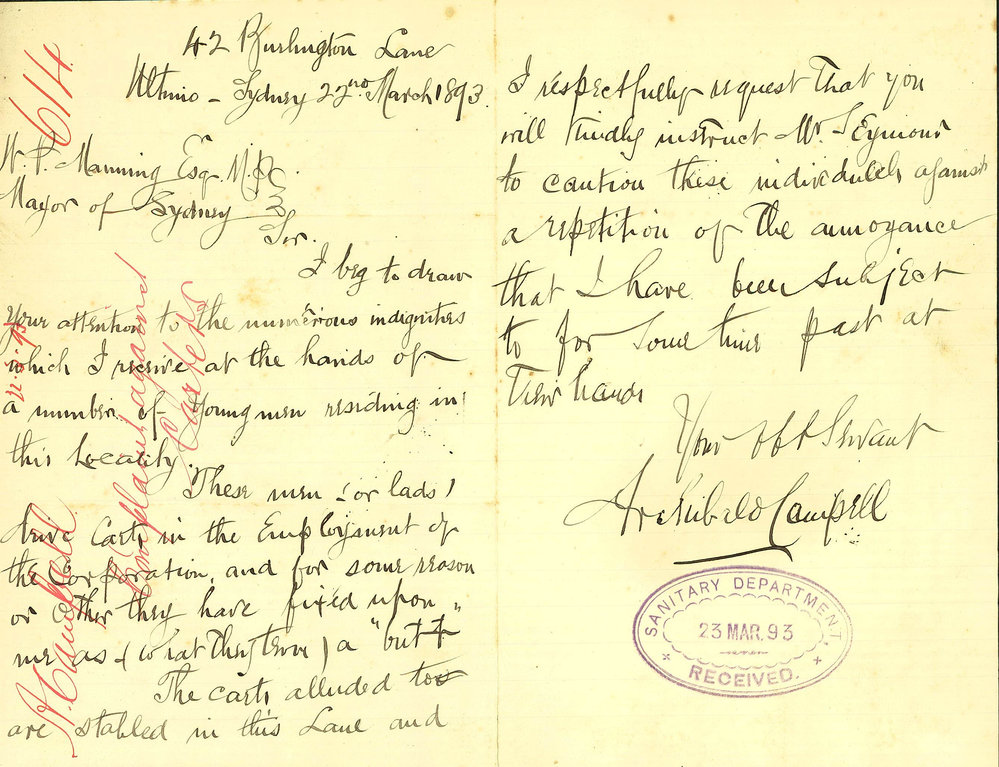 42 Burlington Lane
Ultimo - Sydney 22nd March 1893.
W. P. Manning Esq. M.P.
Mayor of Sydney
Sir.
I beg to draw
your attention to the numerious indignities
which I receive at the hands of
a number of young men residing in
this Locality.
These men (or lads)
drive Carts in the Employment of
the Corporation, and for some reason
or other they have fixed upon
me as (what they term) a "butt"
The carts alluded to
are stabled in this Lane and
I respectfully request that you
will kindly instruct Mr. Seymour
to caution these individuels against
a repetition of the annoyance
that I have been subject
to for some time past at
their hands
Your obt Servant
Archibald Campell
SANITARY DEPARTMENT,
23 MAR. 93
RECEIVED.
614.
A. Campbell
Complaint against
Carters